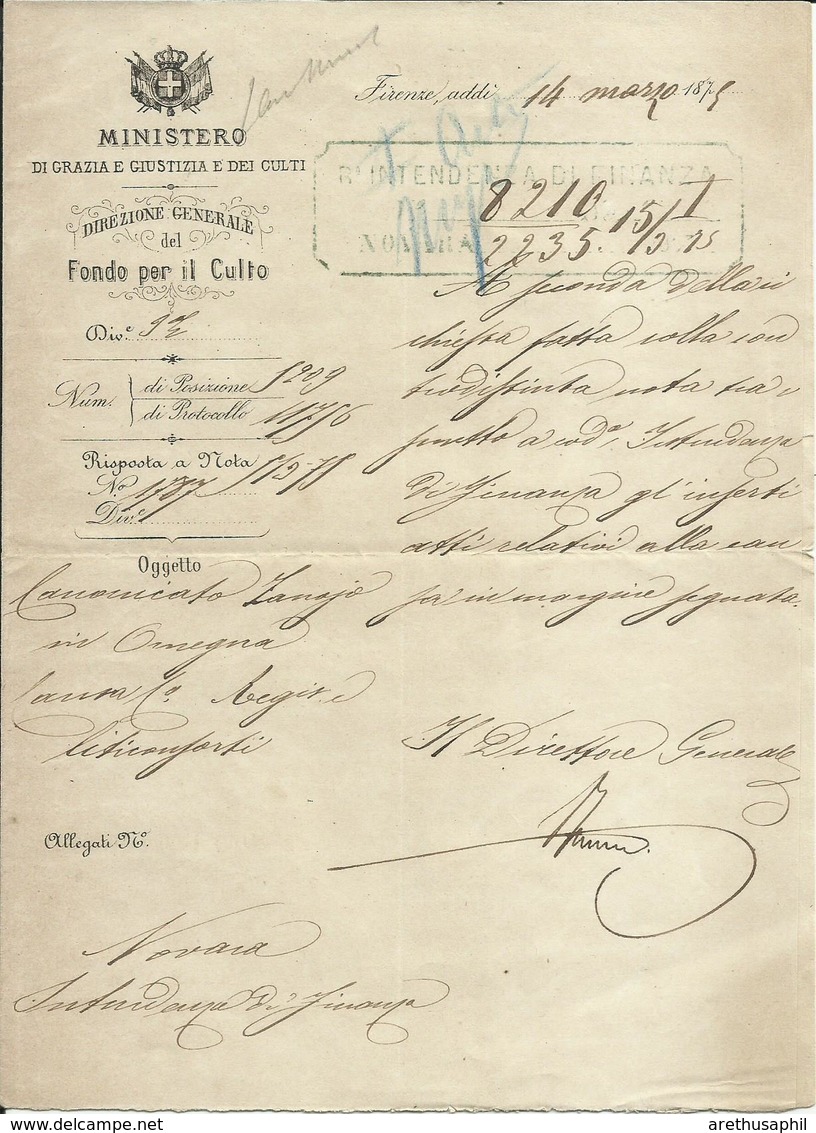 Firenze, addì 14 marzo 1875
MINISTERO
DI GRAZIA E GIUSTIZIA E DEI CULTI
DIREZIONE GENERALE
del
Fondo per il Culto
Div.e
Num. di Posizione 1289
di Protocollo
Risposta a Nota
N.o 1787
Div.e
Oggetto
Canonicato Zanojo
in Omegna
causa C.a
liticonsorti
Allegati N.o
R.a INTENDENZA DI FINANZA
8210 15/1
NOVARA 2235. 3 75
A seconda della ri
chiesta fatta colla con
trodistinta nota tra
smetto a cod.a Intendenza
di Finanza gl'inserti
atti relativi alla cau
sa in margine segnata.
Il Direttore Generale
Novara
Intendenza di Finanza
delcampe.net
arethusaphil